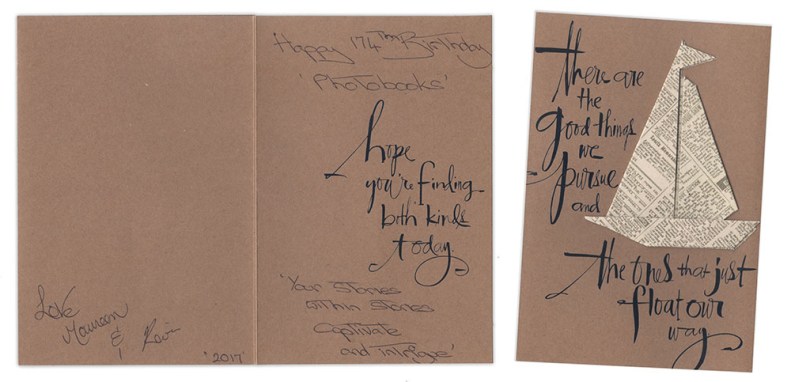 Love
Maureen
&
"2017"
Happy 174th Birthday
'Photobooks'
hope
you're finding
both kinds
today.
'Your Stories
within Stories
Captivate
and intrigue'
there are
the
good things
we
pursue
and
the ones that just
float our
way